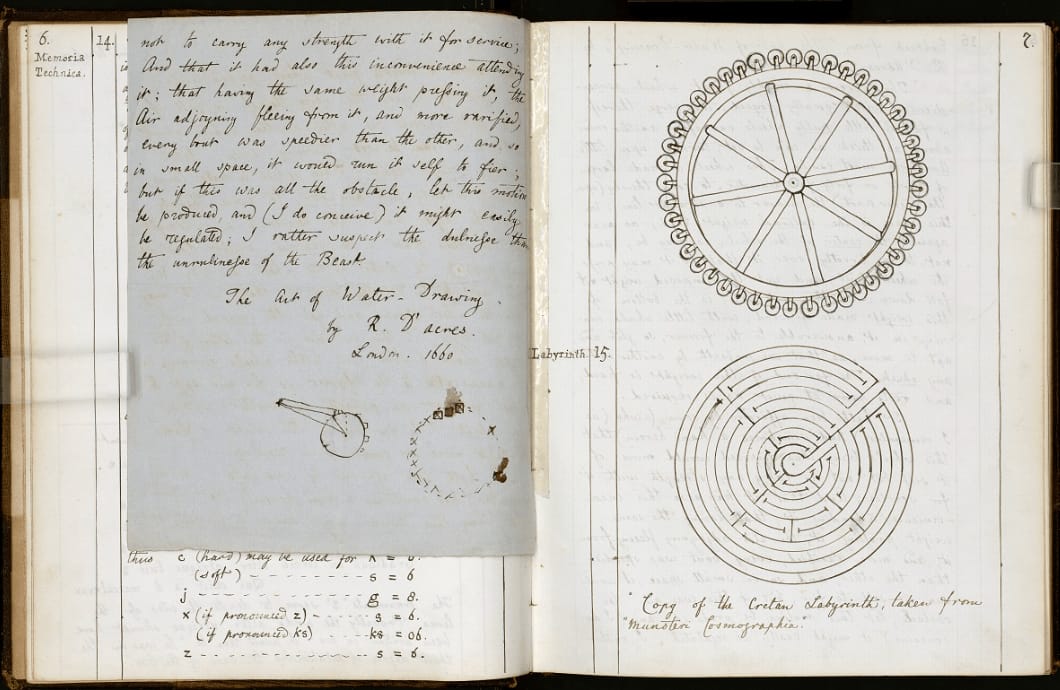 6.
Memoria
Technica.
14.
not to carry any strength with it for service;
And that it had also this inconvenience attending
it; that having the same weight pressing it, the
Air adjoyning fleeing from it, and more rarified,
every bout was speedier than the other, and so
in small space, it would run it self to fier;
but if this was all the obstacle, let this motion
be produced, and (I do conceive) it might easily
be regulated; I rather suspect the dulnesse than
the unrulinesse of the Beast.
The Art of Water-Drawing.
by R. D'acres.
London. 1660
thus c (hard) may be used for
(soft) - - - - - - - - - s = 6
j - - - - - - - - - g = 8.
x (if pronounced z) - - - s = 6.
(if pronounced ks) - - - ks = 06.
z - - - - - - - - - s = 6.
7.
Labyrinth. 15.
"Copy of the Cretan Labyrinth, taken from
"Munsteri Cosmographia."